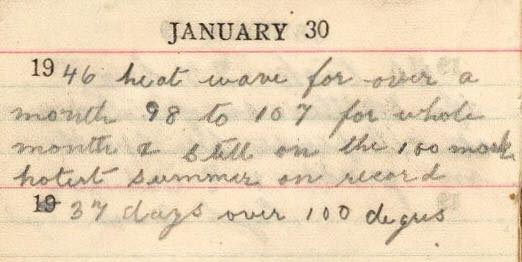 JANUARY 30
1946 heat wave for over a
month 98 to 107 for whole
month & still on the 100 mark
hotest summer on record
19 37 days over 100 degres